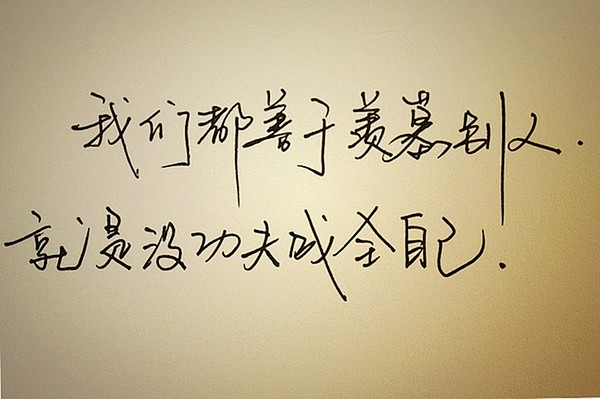 我们都善于羡慕别人.
就是没功夫成全自己.